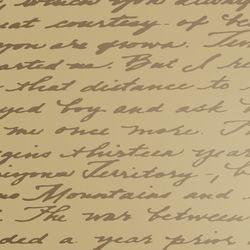 which you always
eat courtesy - of
you are grown.
arted me. But I
that distance to
yed boy and ask
me once more.
gins thirteen year
rizona Territory -,
Mountains and
The war between
ded a year prior